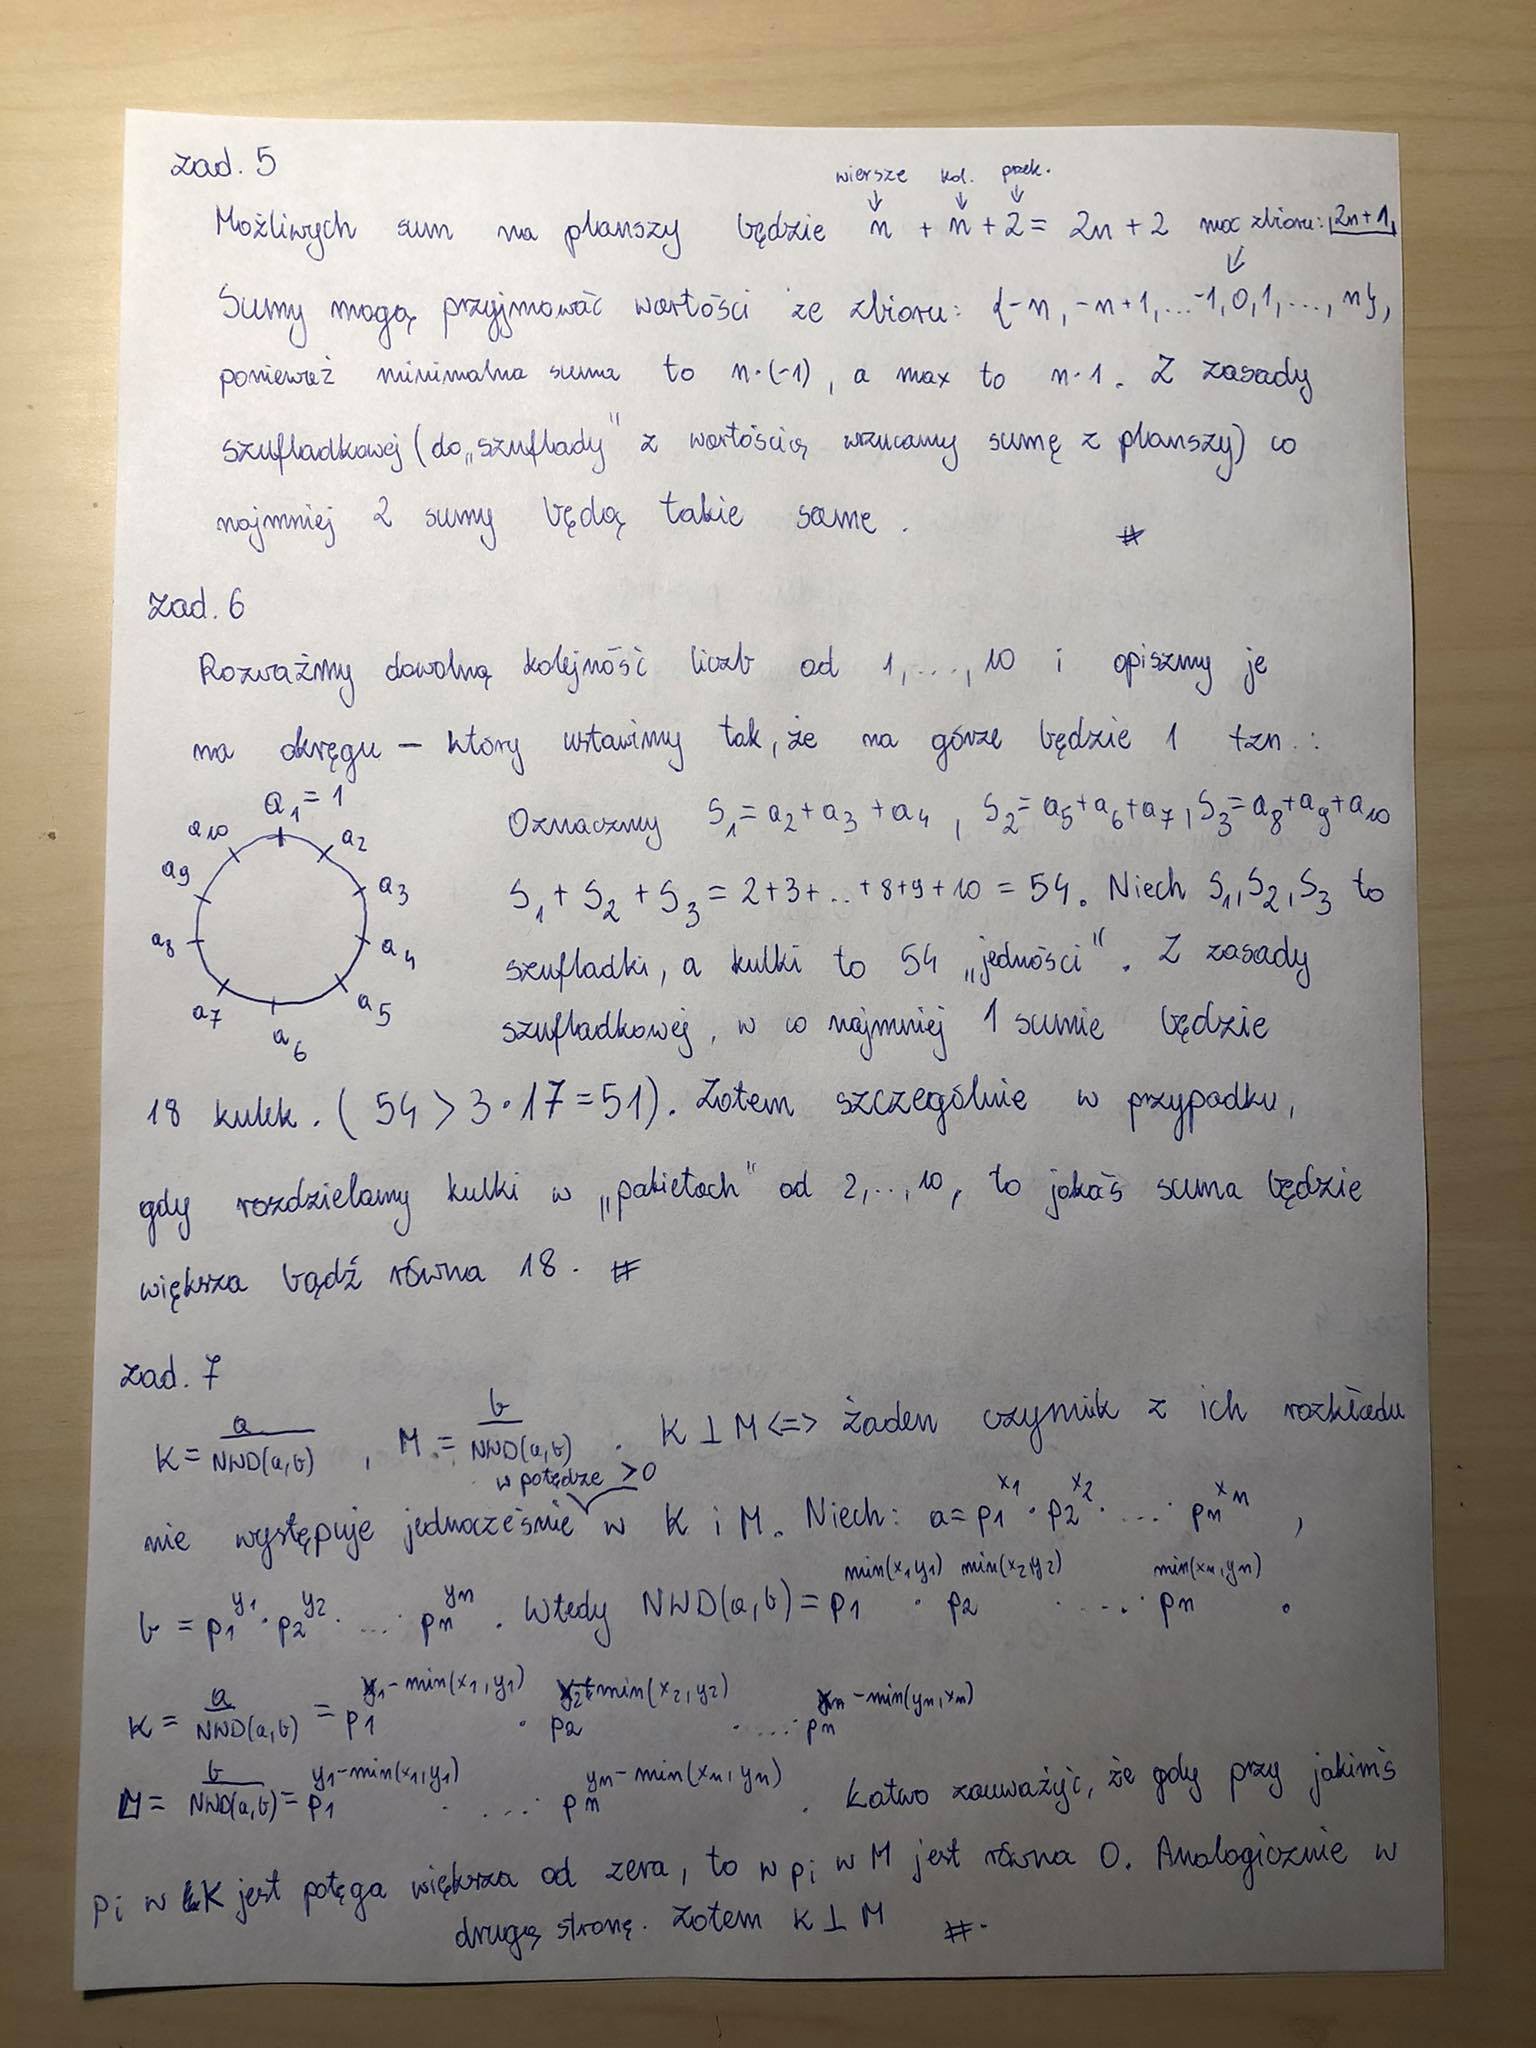 zad. 5
wiersze kol. przek.
↓ ↓ ↓
Możliwych sum na planszy będzie n + n + 2 = 2n + 2 moc zbioru: 2n+1
Sumy mogą przyjmować wartości ze zbioru: {-n, -n+1, ... -1, 0, 1, ..., n},
ponieważ minimalna suma to n·(-1), a max to n·1. Z zasady
szufladkowej (do „szuflady" z wartością wrzucamy sumę z planszy) co
najmniej 2 sumy będą takie same. #
zad. 6
Rozważmy dowolną kolejność liczb od 1, ..., 10 i opiszmy je
na okręgu – który ustawimy tak, że na górze będzie 1 tzn.:
a₁ = 1
a₂
a₃
a₄
a₅
a₆
a₇
a₈
a₉
a₁₀
Oznaczmy S₁ = a₂ + a₃ + a₄, S₂ = a₅ + a₆ + a₇, S₃ = a₈ + a₉ + a₁₀
S₁ + S₂ + S₃ = 2+3+..+8+9+10 = 54. Niech S₁, S₂, S₃ to
szufladki, a kulki to 54 „jedności". Z zasady
szufladkowej, w co najmniej 1 sumie będzie
18 kulek. (54 > 3·17 = 51). Zatem szczególnie w przypadku,
gdy rozdzielamy kulki w „pakietach" od 2, .., 10, to jakaś suma będzie
większa bądź równa 18. #
zad. 7
K = a/NWD(a,b), M = b/NWD(a,b). K ⊥ M <=> żaden czynnik z ich rozkładu
w potędze >0
nie występuje jednocześnie w K i M. Niech: a = p₁^x₁ · p₂^x₂ · ... · pₙ^xₙ,
b = p₁^y₁ · p₂^y₂ · ... · pₙ^yₙ. Wtedy NWD(a,b) = p₁^min(x₁,y₁) · p₂^min(x₂,y₂) · ... · pₙ^min(xₙ,yₙ).
K = a/NWD(a,b) = p₁^x₁-min(x₁,y₁) · p₂^x₂-min(x₂,y₂) · ... · pₙ^xₙ-min(yₙ,xₙ)
M = b/NWD(a,b) = p₁^y₁-min(x₁,y₁) · ... · pₙ^yₙ-min(xₙ,yₙ). Łatwo zauważyć, że gdy przy jakimś
pi w K jest potęga większa od zera, to w pi w M jest równa 0. Analogicznie w
drugą stronę. Zatem K ⊥ M #.